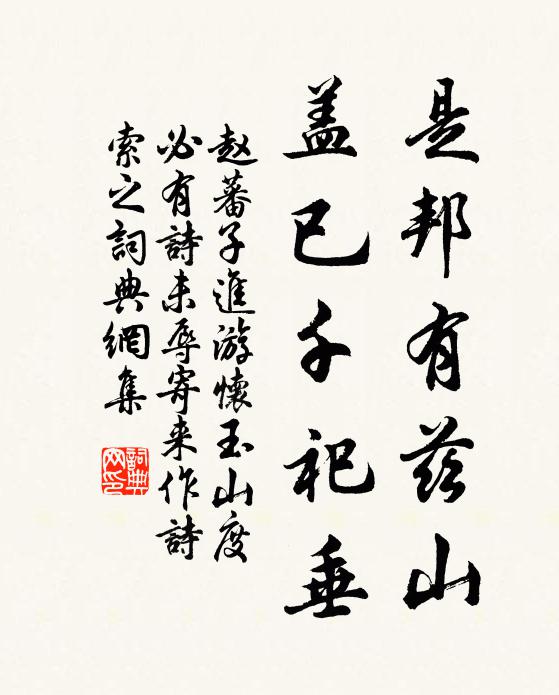 是邦有兹山
盖已千祀垂
赵蕃子進游懷玉山度
必有詩未辱寄来作詩
索之詞典網集
詞典网印